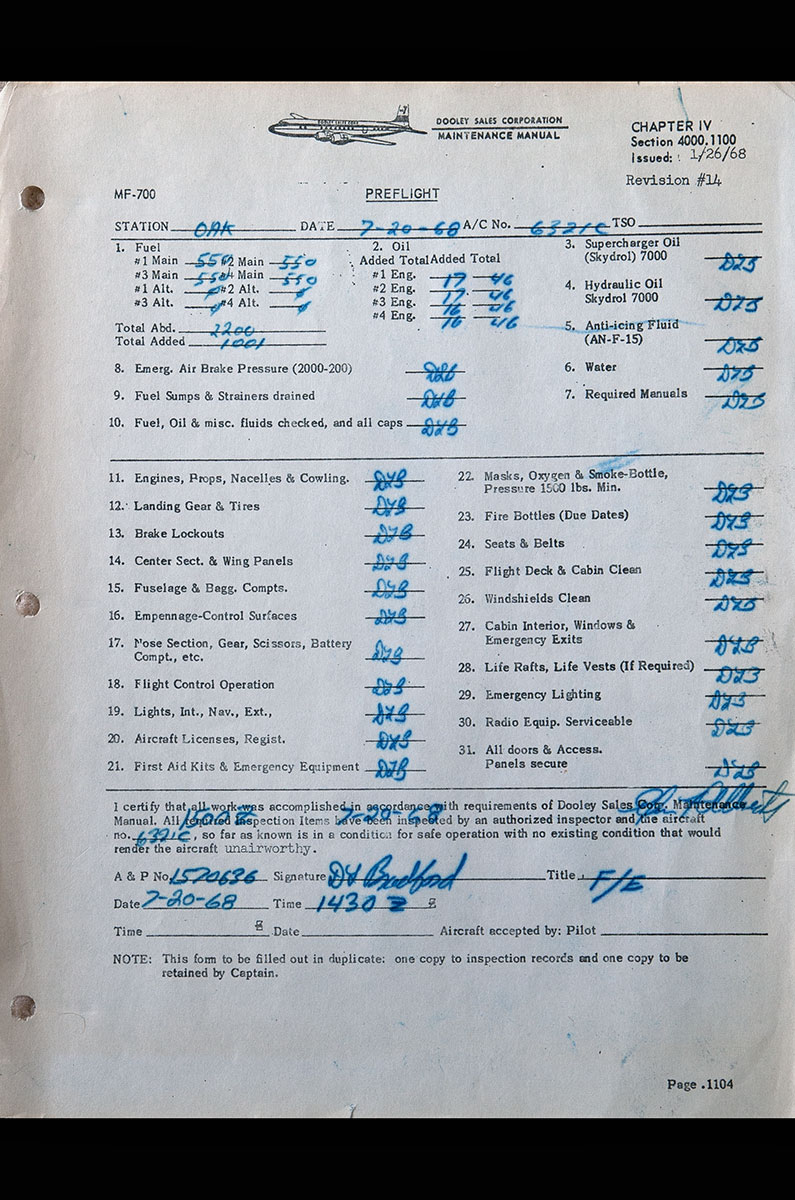 DOOLEY SALES CORP.
DOOLEY SALES CORPORATION
MAINTENANCE MANUAL
CHAPTER IV
Section 4000.1100
Issued: 1/26/68
Revision #14
MF-700 PREFLIGHT
STATION OAK DATE 7-20-68 A/C No. 6321C TSO
1. Fuel
#1 Main 550 #2 Main 550
#3 Main 550 #4 Main 550
#1 Alt. 0 #2 Alt. 0
#3 Alt. 0 #4 Alt. 0
Total Abd. 2200
Total Added 1001
2. Oil
Added Total Added Total
#1 Eng. 17 46
#2 Eng. 17 46
#3 Eng. 16 46
#4 Eng. 16 46
3. Supercharger Oil
(Skydrol) 7000 DJB
4. Hydraulic Oil
Skydrol 7000 DJB
5. Anti-icing Fluid
(AN-F-15) DJB
6. Water DJB
7. Required Manuals DJB
8. Emerg. Air Brake Pressure (2000-200) DJB
9. Fuel Sumps & Strainers drained DJB
10. Fuel, Oil & misc. fluids checked, and all caps DJB
11. Engines, Props, Nacelles & Cowling. DJB
12. Landing Gear & Tires DJB
13. Brake Lockouts DJB
14. Center Sect. & Wing Panels DJB
15. Fuselage & Bagg. Compts. DJB
16. Empennage-Control Surfaces DJB
17. Nose Section, Gear, Scissors, Battery
Compt., etc. DJB
18. Flight Control Operation DJB
19. Lights, Int., Nav., Ext., DJB
20. Aircraft Licenses, Regist. DJB
21. First Aid Kits & Emergency Equipment DJB
22. Masks, Oxygen & Smoke-Bottle,
Pressure 1500 lbs. Min. DJB
23. Fire Bottles (Due Dates) DJB
24. Seats & Belts DJB
25. Flight Deck & Cabin Clean DJB
26. Windshields Clean DJB
27. Cabin Interior, Windows &
Emergency Exits DJB
28. Life Rafts, Life Vests (If Required) DJB
29. Emergency Lighting DJB
30. Radio Equip. Serviceable DJB
31. All doors & Access.
Panels secure DJB
I certify that all work was accomplished in accordance with requirements of Dooley Sales Corp. Maintenance
Manual. All required Inspection Items have been inspected by an authorized inspector and the aircraft
7-20-68
no. 6321C, so far as known is in a condition for safe operation with no existing condition that would
render the aircraft unairworthy.
A & P No. 1570636 Signature DJ Bradford Title F/E
Date 7-20-68 Time 1430 Z Z
Time Z Date Aircraft accepted by: Pilot
NOTE: This form to be filled out in duplicate: one copy to inspection records and one copy to be
retained by Captain.
Page .1104